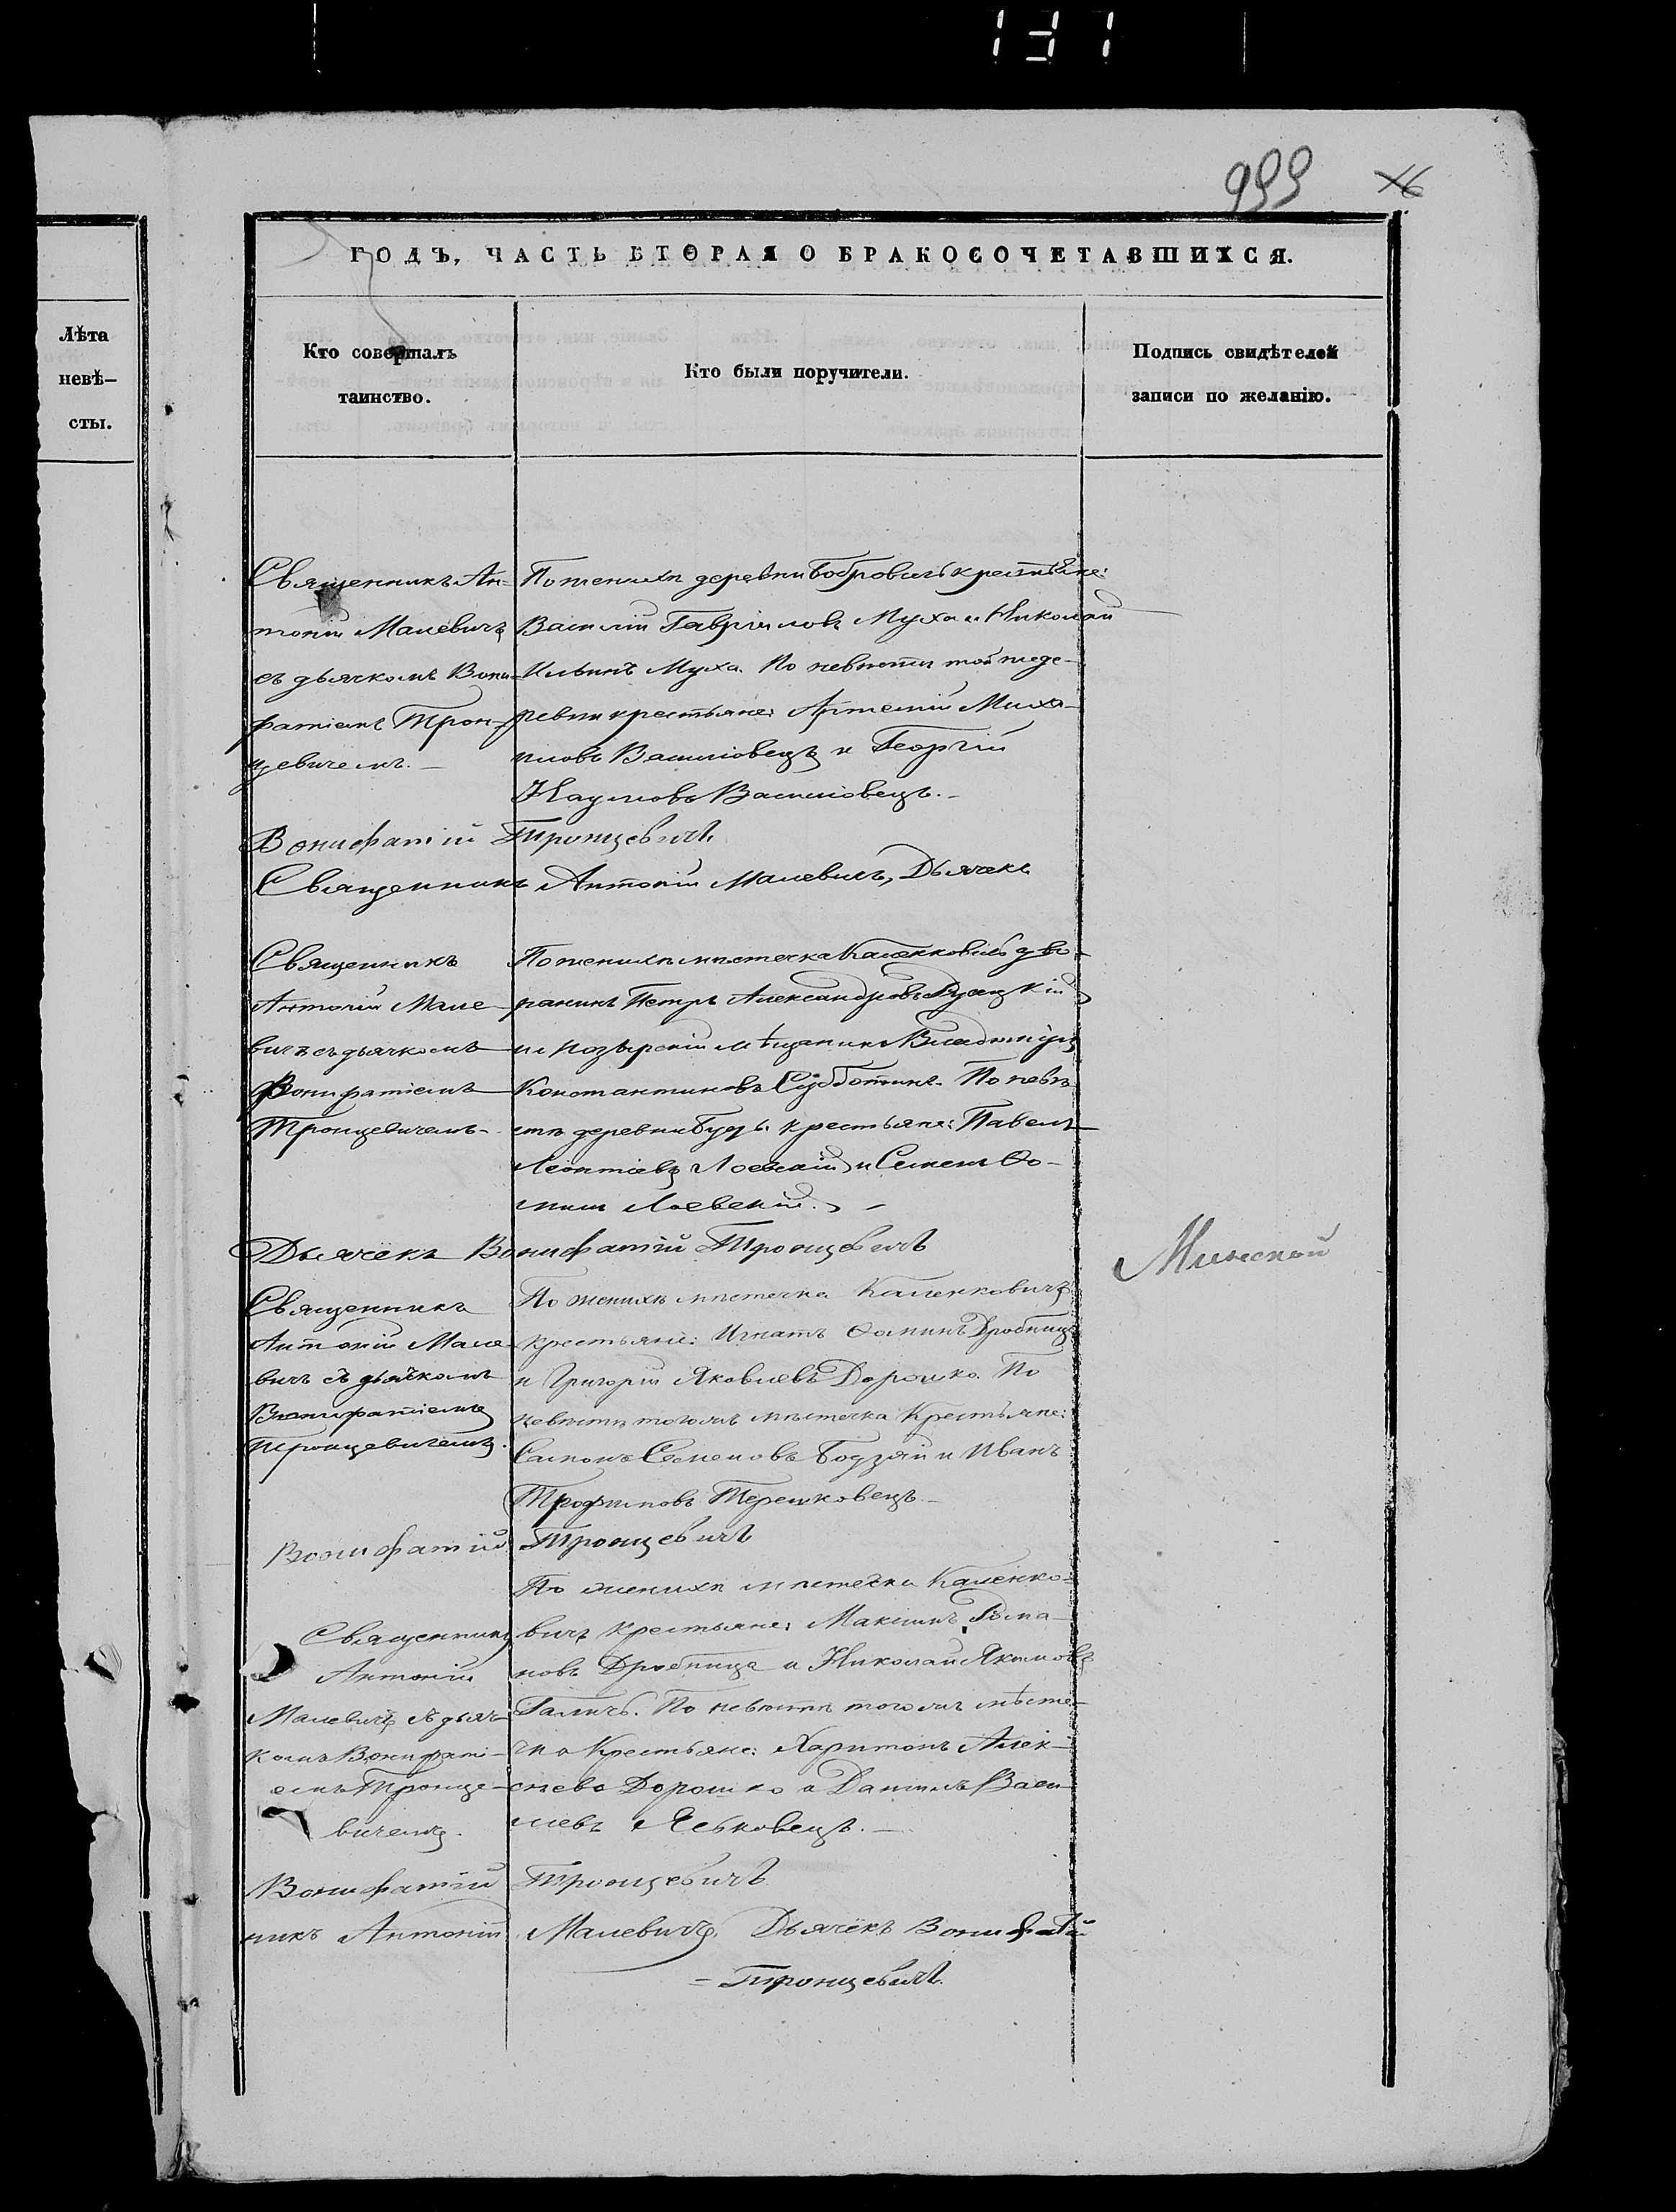 131
999
16
ГОДЪ, ЧАСТЬ ВТОРАЯ О БРАКОСОЧЕТАВШИХСЯ.
Лѣта
невѣ-
сты.
Кто совершалъ
таинство.
Кто были поручители.
Подпись свидѣтелей
записи по желанію.
Священникъ Ан-
тоній Малевичъ
съ дьячкомъ Вони-
фатіемъ Трон-
цевичемъ.
По женихѣ деревни Бобровичъ крестьяне:
Василій Гавріиловъ Муха и Николай
Ильинъ Муха. По невѣстѣ той же де-
ревни крестьяне: Артемій Миха-
иловъ Василовецъ и Георгій
Наумовъ Василовецъ.
Вонифатій Тронцевичъ
Священникъ Антоній Малевичъ, Дьячекъ
Священникъ
Антоній Мале-
вичъ съ дьячкомъ
Вонифатіемъ
Тронцевичемъ.
По женихѣ мѣстечка Каленковичъ дво-
ранинъ Петръ Александровъ
и Мозырскій мѣщанинъ Владиміръ
Константиновъ Субботинъ. По невѣ-
стѣ деревни Буды крестьяне: Павелъ
Леонтіевъ Лоевскій и Семенъ Ѳо-
минъ Лоевскій.
Дьячекъ Вонифатій Тронцевичъ
Минской
Священникъ
Антоній Мале-
вичъ съ дьячкомъ
Вонифатіемъ
Тронцевичемъ.
По женихѣ мѣстечка Каленковичъ
крестьяне: Игнатъ Ѳоминъ Дробница
и Григорій Яковлевъ Дорошко. По
невѣстѣ того жъ мѣстечка крестьяне:
Самонъ Семеновъ Бодзяй и Иванъ
Трофимовъ Терешковецъ.
Вонифатій Тронцевичъ
Священникъ
Антоній
Малевичъ съ дьяч-
комъ Вонифаті-
емъ Тронце-
вичемъ.
По женихѣ мѣстечка Каленко-
вичъ крестьяне: Максимъ Рома-
новъ Дробница и Николай Якимовъ
Галичъ. По невѣстѣ того жъ мѣсте-
чка Крестьяне: Харитонъ Алек-
сѣевъ Дорошко и Даніилъ Васи-
левъ Яськовецъ.
Вонифатій Тронцевичъ
никъ Антоній Малевичъ, Дьячекъ Вонифатій
Тронцевичъ.